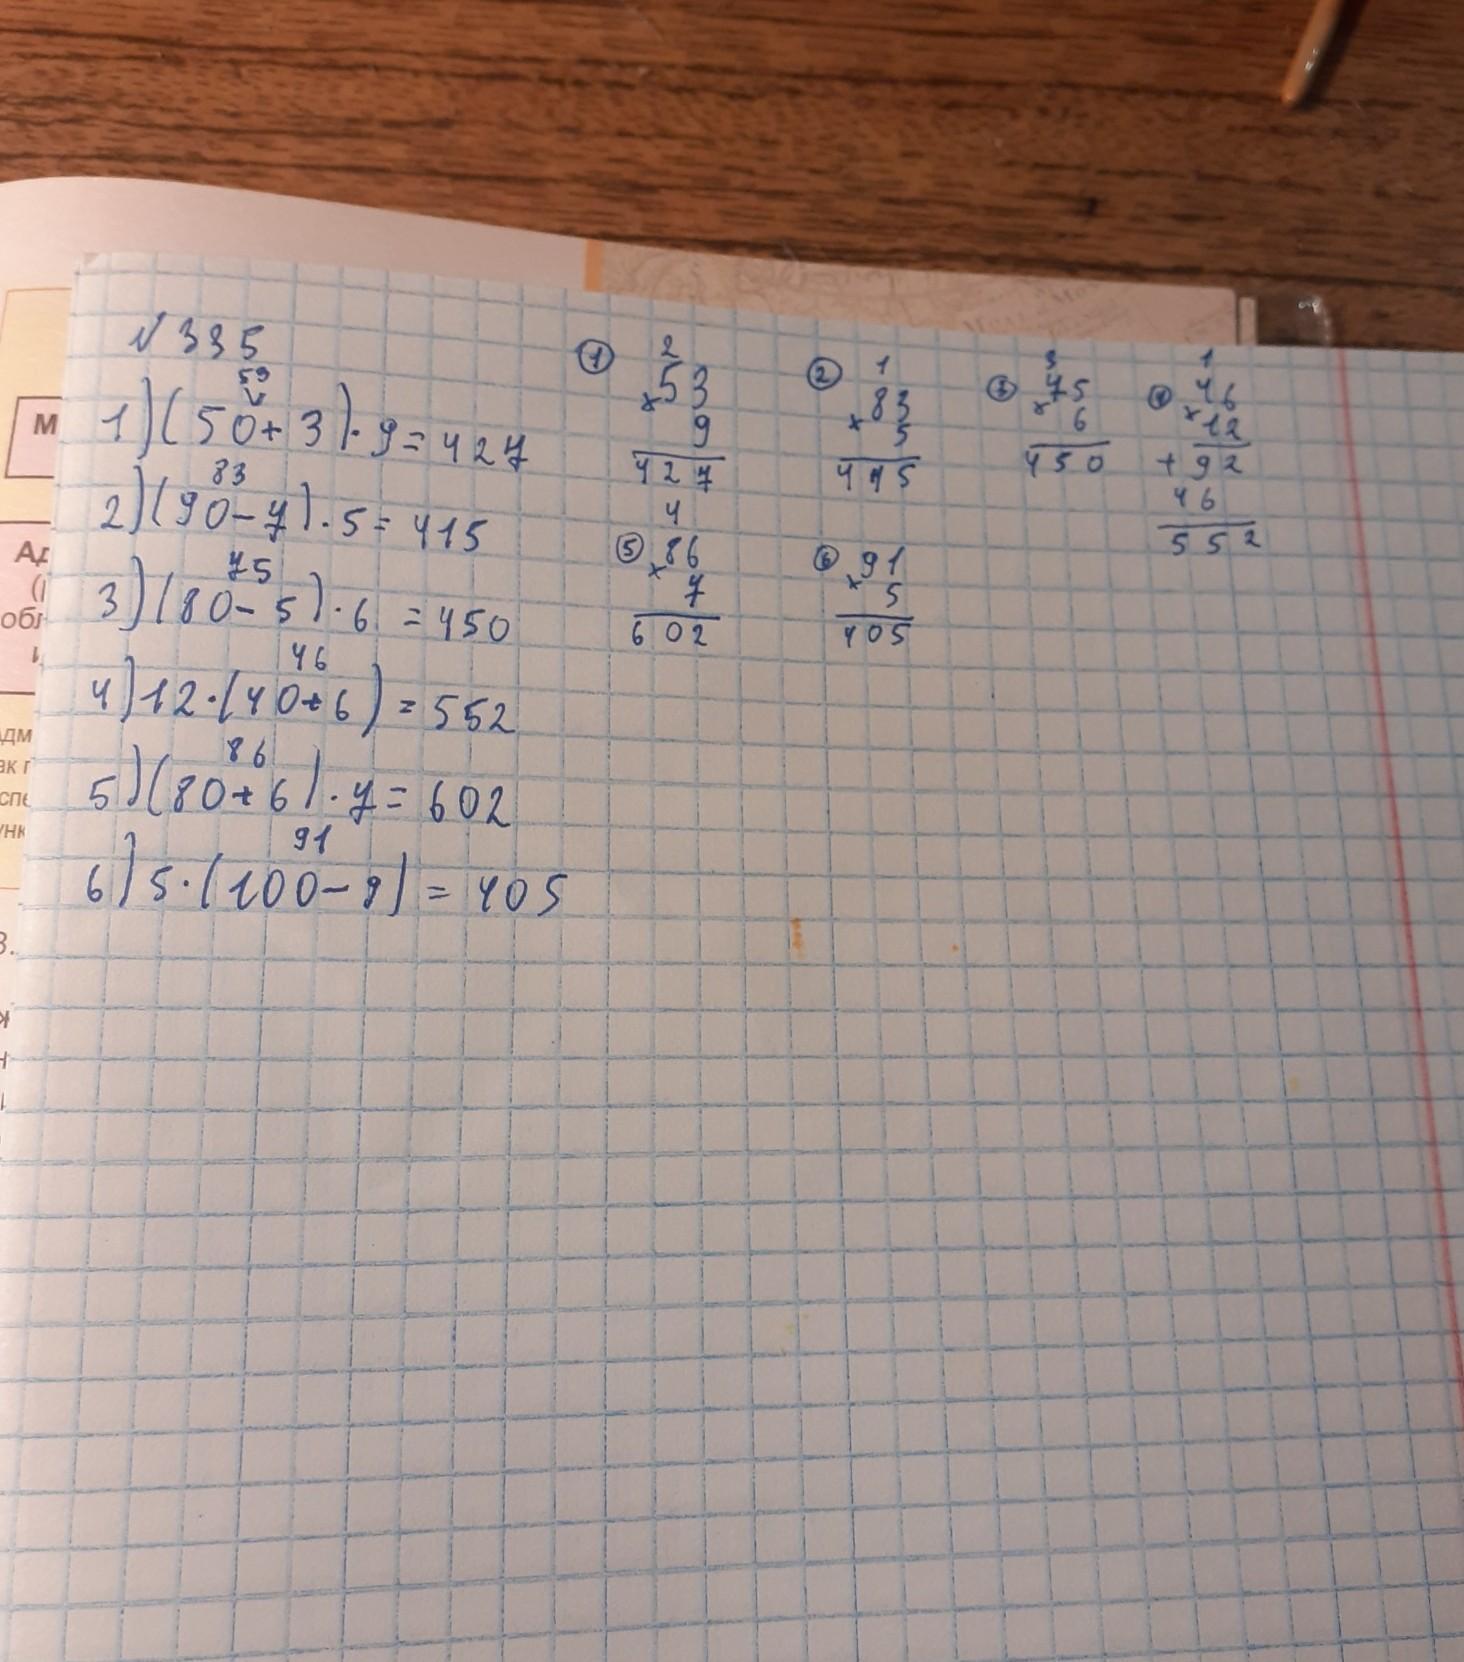 №335
53
1) (50+3)·9=427
83
2) (90-7)·5=415
75
3) (80-5)·6=450
46
4) 12·(40+6)=552
86
5) (80+6)·7=602
91
6) 5·(100-9)=405
① 2
×53
9
427
② 1
×83
5
415
③ 3
×75
6
450
④ 1
×46
12
+92
46
552
⑤ 4
×86
7
602
⑥ ×91
5
405
М
Ад